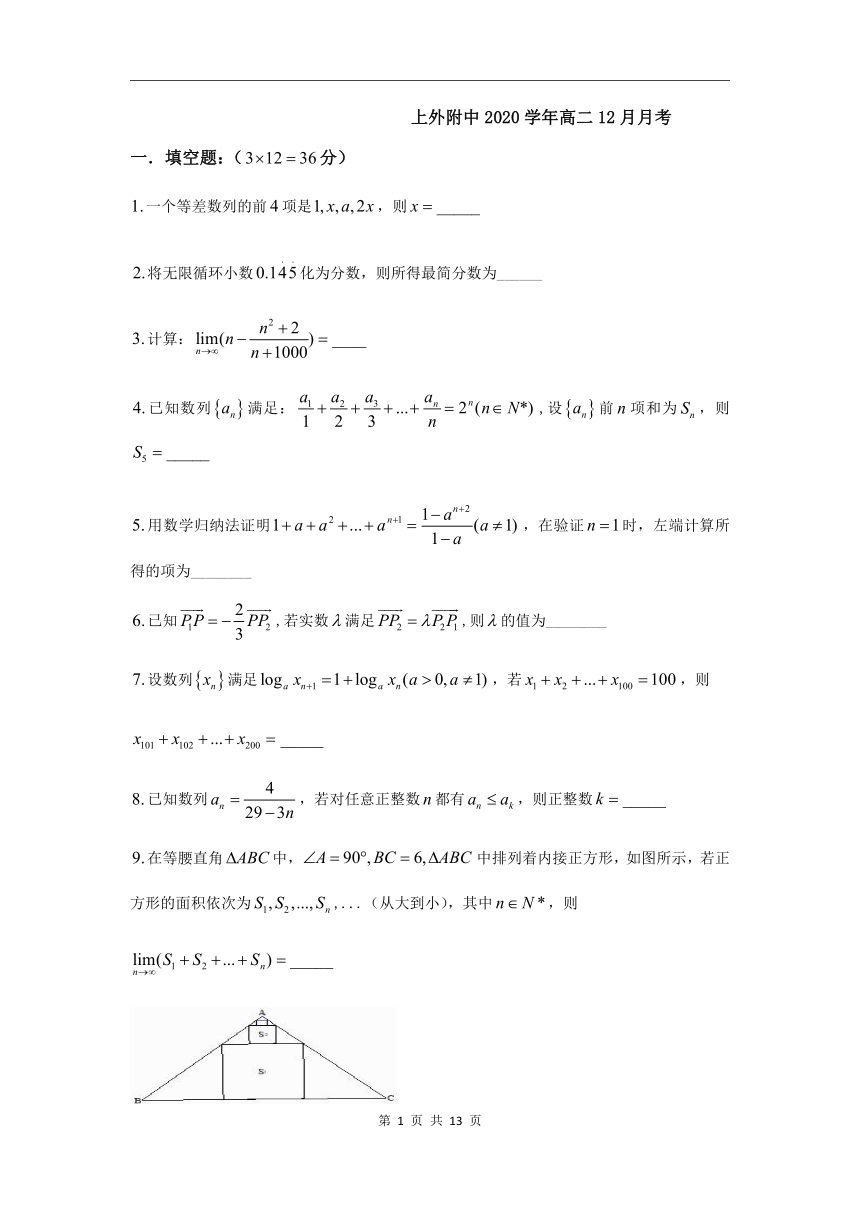 上外附中 2020 学年高二 12 月月考
一．填空题：（3×12＝36 分）
1.一个等差数列的前 4 项是1, x, a, 2x，则 x = _____
2.将无限循环小数 0.14̇5̇ 化为分数，则所得最简分数为______
3.计算：lim(n→∞) (n − (n²+2)/(n+1000)) = ____
4.已知数列{aₙ}满足：a₁/1 + a₂/2 + a₃/3 + ... + aₙ/n = 2ⁿ(n∈N*)，设{aₙ}前 n 项和为 Sₙ，则
S₅ = _____
5.用数学归纳法证明1+a+a²+...+aⁿ⁺¹ = (1−aⁿ⁺²)/(1−a) (a≠1)，在验证 n=1时，左端计算所
得的项为________
6.已知 P₁P→ = −2/3 PP₂→，若实数λ满足 PP₂→ = λP₂P₁→，则λ的值为________
7.设数列{xₙ}满足 logₐ xₙ₊₁ =1+logₐ xₙ(a>0,a≠1)，若 x₁+x₂+...+x₁₀₀ =100，则
x₁₀₁+x₁₀₂+...+x₂₀₀ = _____
8.已知数列 aₙ = 4/(29−3n)，若对任意正整数 n 都有 aₙ ≤ aₖ，则正整数 k = _____
9.在等腰直角 ΔABC 中，∠A=90°,BC=6,ΔABC 中排列着内接正方形，如图所示，若正
方形的面积依次为 S₁,S₂,...,Sₙ,...（从大到小），其中 n∈N*，则
lim(n→∞) (S₁+S₂+...+Sₙ) = _____
A
S₂
S₁
B C
第 1 页 共 13 页